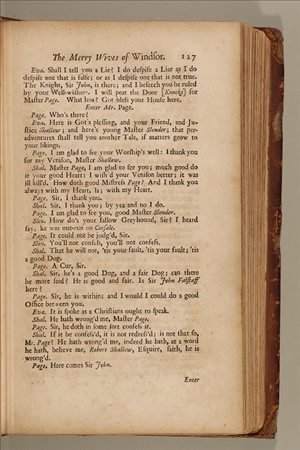 The Merry Wives of Windsor. 127
Eva. Shall I tell you a Lie? I do despise a Liar as I do
despise one that is false; or as I despise one that is not true.
The Knight, Sir John, is there; and I beseech you be ruled
by your Well-wishers. I will peat the Door [Knocks] for
Master Page. What hoa? Got bless your House here.
Enter Mr. Page.
Page. Who's there?
Eva. Here is Got's plessing, and your Friend, and Ju-
stice Shallow; and here's young Master Slender; that per-
adventures shall tell you another Tale, if matters grow to
your likings.
Page. I am glad to see your Worship's well: I thank you
for my Venison, Master Shallow.
Shal. Master Page, I am glad to see you; much good do
it your good Heart: I wish'd your Venison better; it was
ill kill'd. How doth good Mistress Page? And I thank you
always with my Heart, la; with my Heart.
Page. Sir, I thank you.
Shal. Sir, I thank you; by yea and no I do.
Page. I am glad to see you, good Master Slender.
Slen. How do's your fallow Greyhound, Sir? I heard
say, he was out-run on Cotsale.
Page. It could not be judg'd, Sir.
Slen. You'll not confess, you'll not confess.
Shal. That he will not, 'tis your fault, 'tis your fault; 'tis
a good Dog.
Page. A Cur, Sir.
Shal. Sir, he's a good Dog, and a fair Dog; can there
be more said? He is good and fair. Is Sir John Falstaff
here?
Page. Sir, he is within; and I would I could do a good
Office between you.
Eva. It is spoke as a Christians ought to speak.
Shal. He hath wrong'd me, Master Page.
Page. Sir, he doth in some sort confess it.
Shal. If it be confess'd, it is not redress'd; is not that so,
Mr. Page? He hath wrong'd me, indeed he hath, at a word
he hath, believe me, Robert Shallow, Esquire, saith, he is
wrong'd.
Page. Here comes Sir John.
Enter